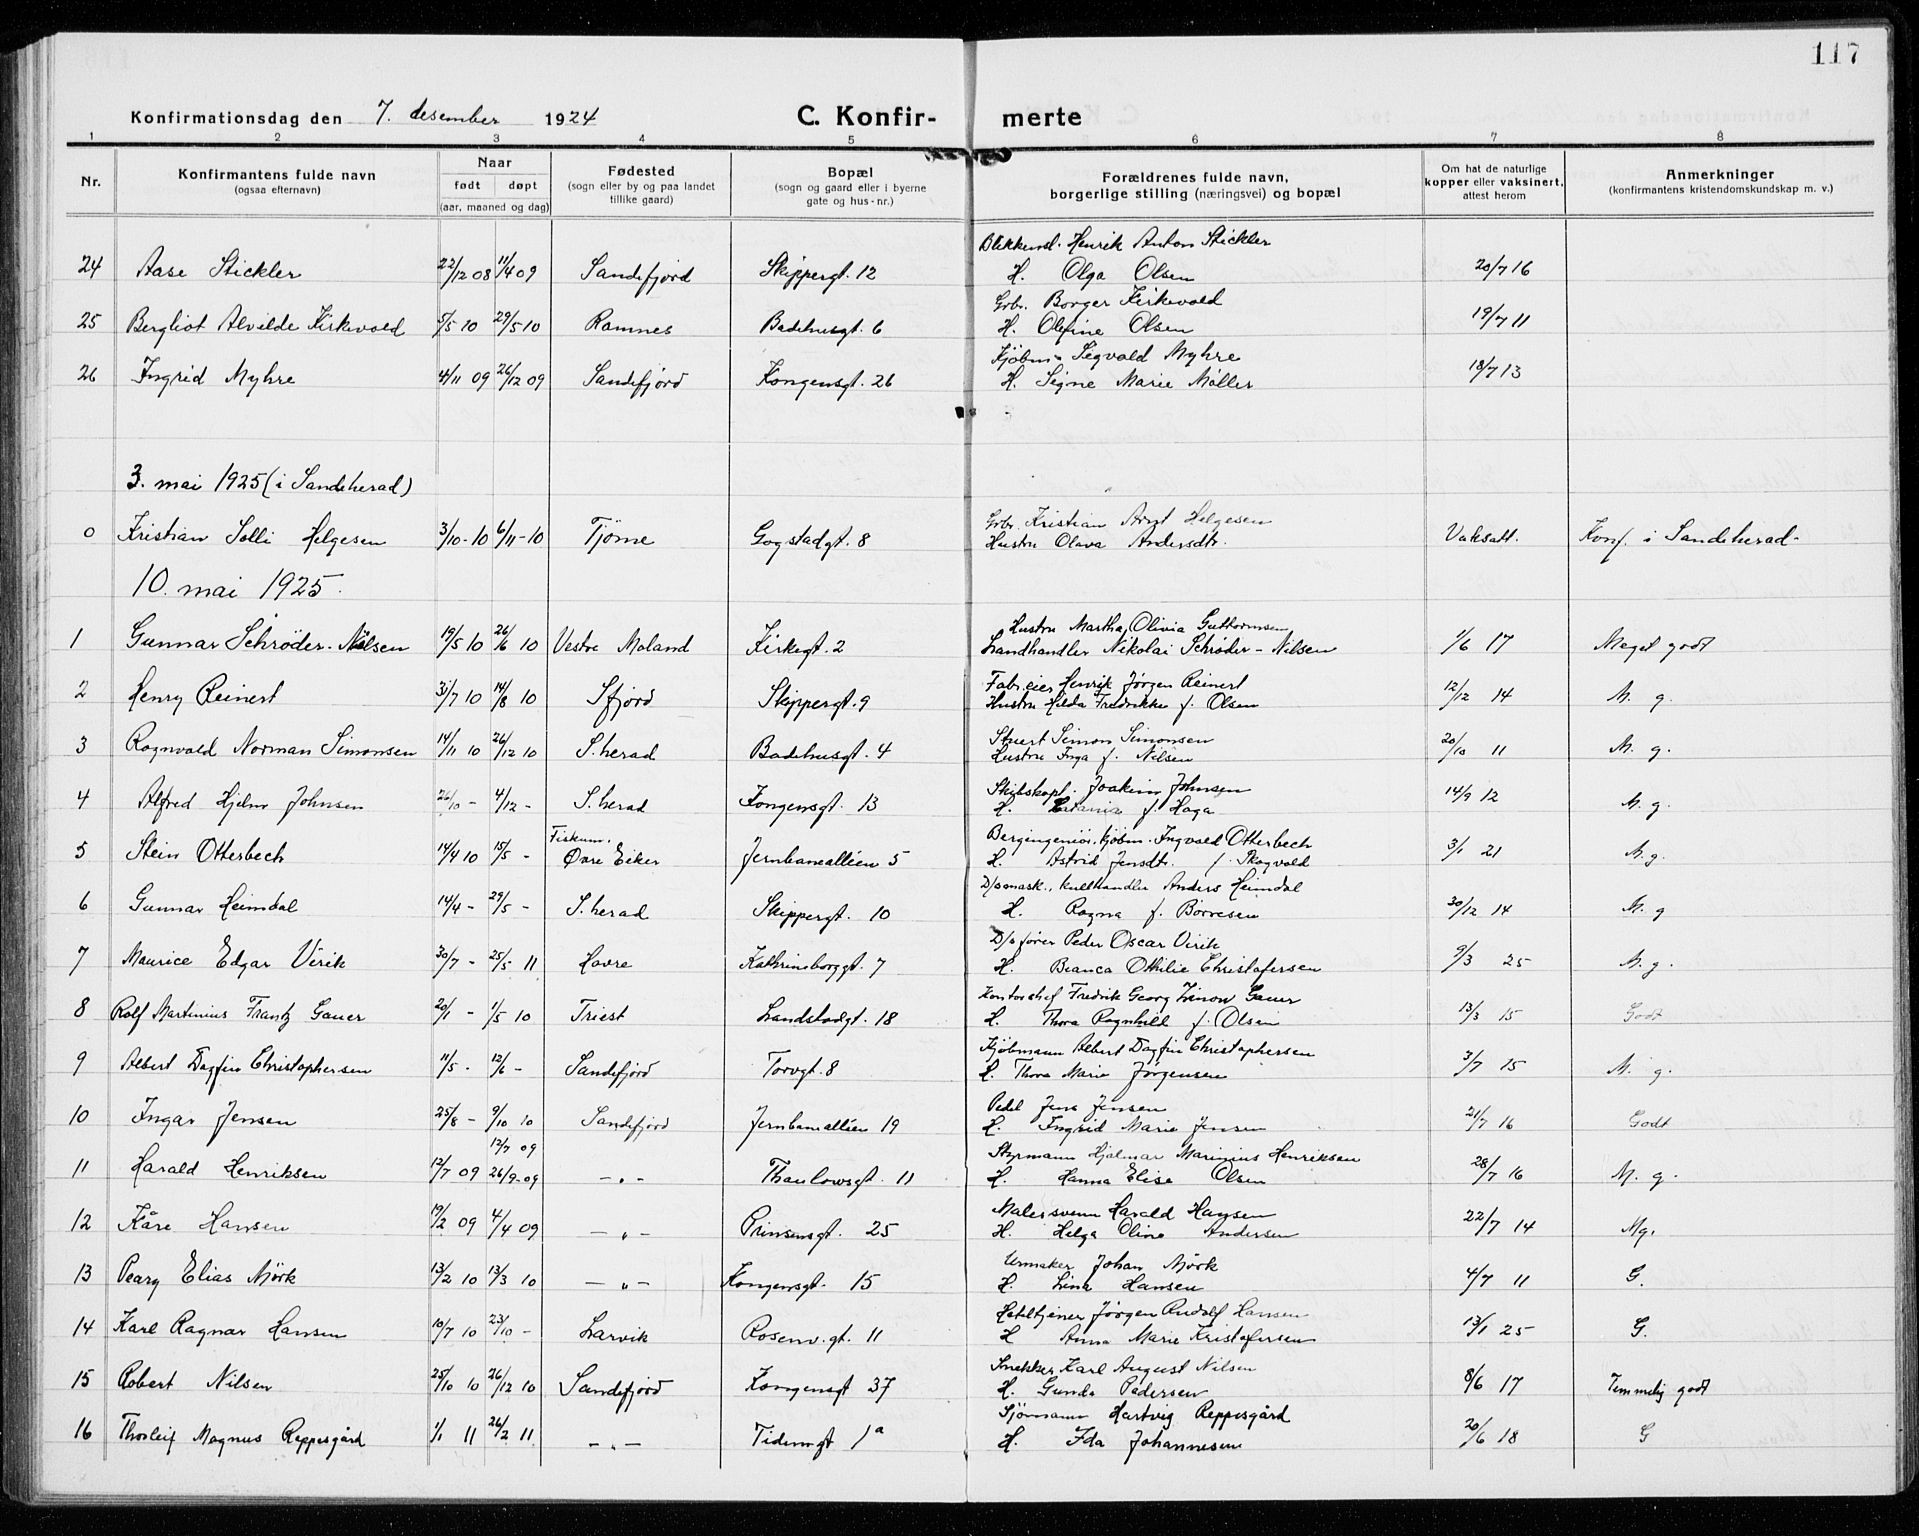 117
Konfirmationsdag den 7. desember 1924 C. Konfir- merte
1 2 3 4 5 6 7 8
Nr. Konfirmantens fulde navn (ogsaa efternavn) Naar født døpt (aar, maaned og dag) Fødested (sogn eller by og paa landet tillike gaard) Bopæl (sogn og gaard eller i byerne gate og hus-nr.) Forældrenes fulde navn, borgerlige stilling (næringsvei) og bopæl Om hat de naturlige kopper eller vaksinert, attest herom Anmerkninger (konfirmantens kristendomskundskap m. v.)
Blikkensl. Henrik Anton Stickler
24 Aase Stickler 22/12 08 11/4 09 Sandefjord Skippergt. 12 H. Olga Olsen 20/7 16
Grbr. Borger Kirkevold
25 Bergliot Alvilde Kirkevold 5/5 10 29/5 10 Ramnes Badehusgt. 6 H. Olefine Olsen 19/7 11
Kjøbm. Sigvald Myhre
26 Ingrid Myhre 4/11 09 26/12 09 Sandefjord Kongensgt. 26 H. Signe Marie Møller 18/7 13
3. mai 1925 (i Sandeherad)
Grbr. Kristian Arnt Helgesen
0 Kristian Solli Helgesen 3/10-10 6/11-10 Tjøme Gogstadgt. 8 Hustru Olava Andersdtr. Vaksatt. Konf. i Sandeherad-
10. mai 1925.
Hustru Martha Olivia Guttormsen
1 Gunnar Schrøder-Nilsen 19/5 10 26/6 10 Vestre Moland Kirkegt. 2 Landhandler Nikolai Schrøder-Nilsen 1/6 17 Meget godt
Fabr.eier Henrik Jörgen Reinert
2 Henry Reinert 31/7 10 14/8 10 Sfjord Skippergt. 9 Hustru Hilda Fredrikke f. Olsen 12/12 14 M. g.
Stuert Simon Simonsen
3 Ragnvald Norman Simonsen 14/11 10 26/12 10 S.herad Badehusgt. 4 Hustru Inga f. Nilsen 20/10 11 M. g.
Skibskapt. Joakim Johnsen
4 Alfred Hjelm Johnsen 26/10 - 4/12 - S.herad Kongensgt. 13 H. f. Haga 14/9 12 M. g.
Fiskum. Bergingeniör, kjöbm. Ingvald Otterbech
5 Stein Otterbech 14/4 10 15/5 - Øvre Eiker Jernbanealléen 5 H. Astrid Jensdtr. f. Skogvold 3/1 21 M. g.
D/s mask., kullhandler Anders Heimdal
6 Gunnar Heimdal 14/4 - 29/5 - S.herad Skippergt. 10 H. Ragna f. Børresen 30/12 14 M. g
D/s fører Peder Oscar Virik
7 Maurice Edgar Virik 30/7 - 25/5 11 Havre Kathrineborggt. 7 H. Bianca Othilie Christofersen 9/3 25 M. g.
Kontorchef Fredrik Georg Gauer
8 Rolf Martinius Frantz Gauer 20/1 - 1/5 10 Triest Landstadgt. 18 H. Thora Ragnhild f. Olsen 13/3 15 Godt
Kjöbmann Albert Dagfin Christophersen
9 Albert Dagfin Christophersen 11/5 - 12/6 - Sandefjord Torvgt. 8 H. Thora Marie Jørgensen 3/7 15 M. g.
Pedel Jens Jensen
10 Ingar Jensen 25/8 - 9/10 10 Sandefjord Jernbanealléen 19 H. Ingrid Marie Jensen 21/7 16 Godt
12/7 09 Styrmann Hjalmar Marinius Henriksen
11 Harald Henriksen 12/7 09 26/9-09 -„- Thaulowsgt. 11 H. Hanna Elise Olsen 28/7 16 M. g.
Malersvenn Harald Hansen
12 Kåre Hansen 19/2 09 4/4 09 -„- Prinsensgt. 25 H. Helga Oline Andersen 22/7 14 Mg.
Urmaker Johan Mörk
13 Peary Elias Mörk 13/2 10 13/3 10 -„- Kongensgt. 15 H. Lina Hansen 4/7 11 G.
Hoteltjener Jørgen Rudolf Hansen
14 Karl Ragnar Hansen 10/7 10 23/10 - Larvik Rosenv.gt. 11 H Anna Marie Kristofersen 13/1 25 G.
Snekker Karl August Nilsen
15 Robert Nilsen 25/10 10 26/12 10 Sandefjord Kongensgt 37 H. Gunda Pedersen 8/6 17 Temmelig godt
Sjömann Hartvig Reppesgård
16 Thorleif Magnus Reppesgård 1/1 11 26/2 11 -„- Tidemgt 1a H. Ida Johannesen 20/6 18 G